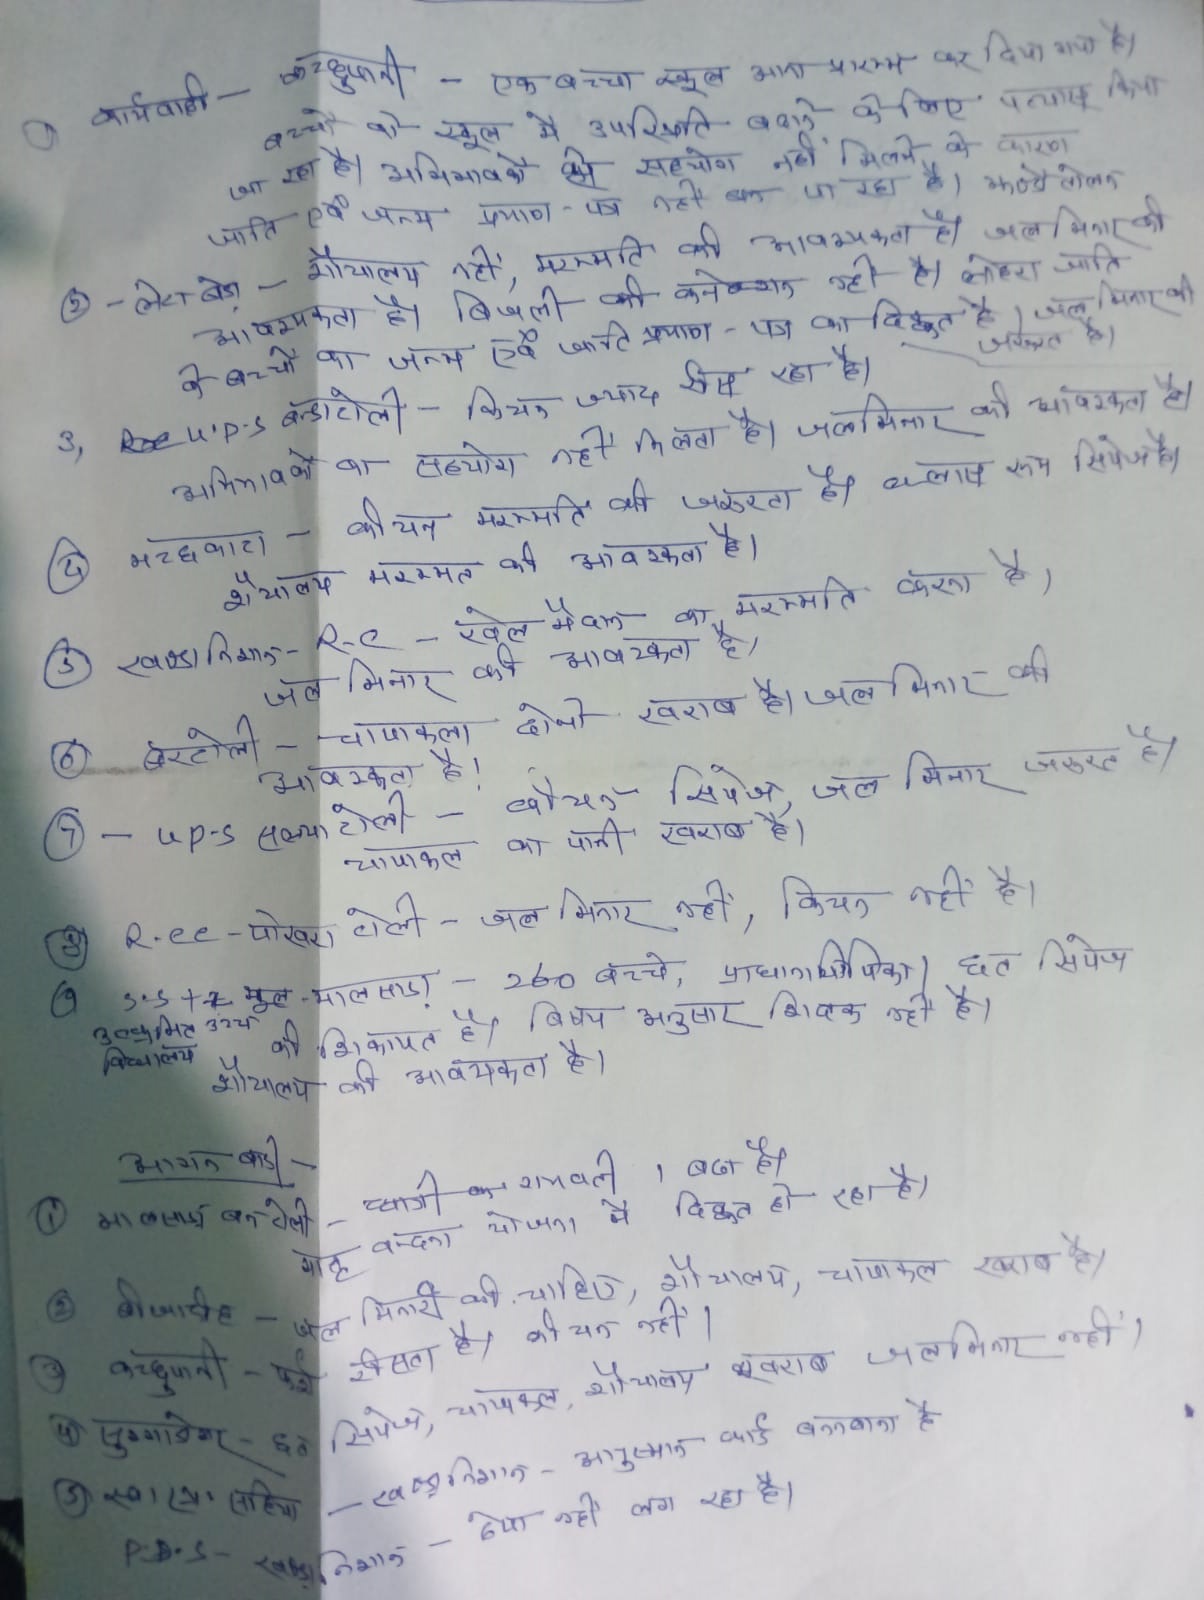 ① कार्यवाही - कच्छुपानी - एक बच्चा स्कूल आना प्रारम्भ कर दिया गया है।
बच्चों को स्कूल में उपस्थिति बढ़ाने के लिए प्रत्यास किया
जा रहा है। अभिभावकों को सहयोग नहीं मिलने के कारण
जाति एवं जन्म प्रमाण-पत्र नहीं बन पा रहा है।
② - लेटाबेड़ा - शौचालय नहीं, मरम्मति की आवश्यकता है। जल मिनार की
आवश्यकता है। बिजली की कनेक्शन नहीं है। लोहरा जाति
के बच्चों का जन्म एवं जाति प्रमाण-पत्र का दिक्कत है, जल मिनार की
जरूरत है।
3, U.P-S बन्डाटोली - किचन ज्यादा सीप रहा है।
अभिभावकों का सहयोग नहीं मिलता है। जलमिनार की आवश्कता है।
④ मच्छकाटा - कीचन मरम्मति की जरूरता है। क्लास रूम सिपेज है।
शौचालय मरम्मत की आवश्कता है।
⑤ खण्डानिशान - R-C - खेल मैदान का मरम्मति करना है,
जल मिनार की आवश्यकता है।
⑥ बेरटोली - चापाकला दोनों खराब है। जल मिनार की
आवश्कता है!
⑦ - U P-S टोली - कीचन सिपेज, जल मिनार जरूरत है।
चापाकल का पानी खराब है।
⑧ R.CC - पोखरा टोली - जल मिनार नहीं, किचन नहीं है।
⑨ S.S +2 स्कूल - मालसाड़ा - 260 बच्चे, छत सिपेज
उत्क्रमित उच्च
विद्यालय
की शिकायत है। विषय अनुसार शिक्षक नहीं है।
शौचालय की आवश्यकता है।
आगनबाड़ी -
① मालसाड़ा बनटोली - रामवली।
मातृ वन्दना योजना में दिक्कत हो रहा है।
② - जल मिनार की चाहिए, शौचालय, चापाकल खराब है।
③ कच्छुपानी - फर्श सीसता है। कीचन नहीं।
④ - छत सिपेज, चापाकल, शौचालय खराब जलमिनार नहीं।
⑤ स्वास्थ्य सहिया - खण्डानिशान - आयुस्मान कार्ड बनवाना है
P.D.S - खण्डानिशान - ठेपा नहीं लग रहा है।